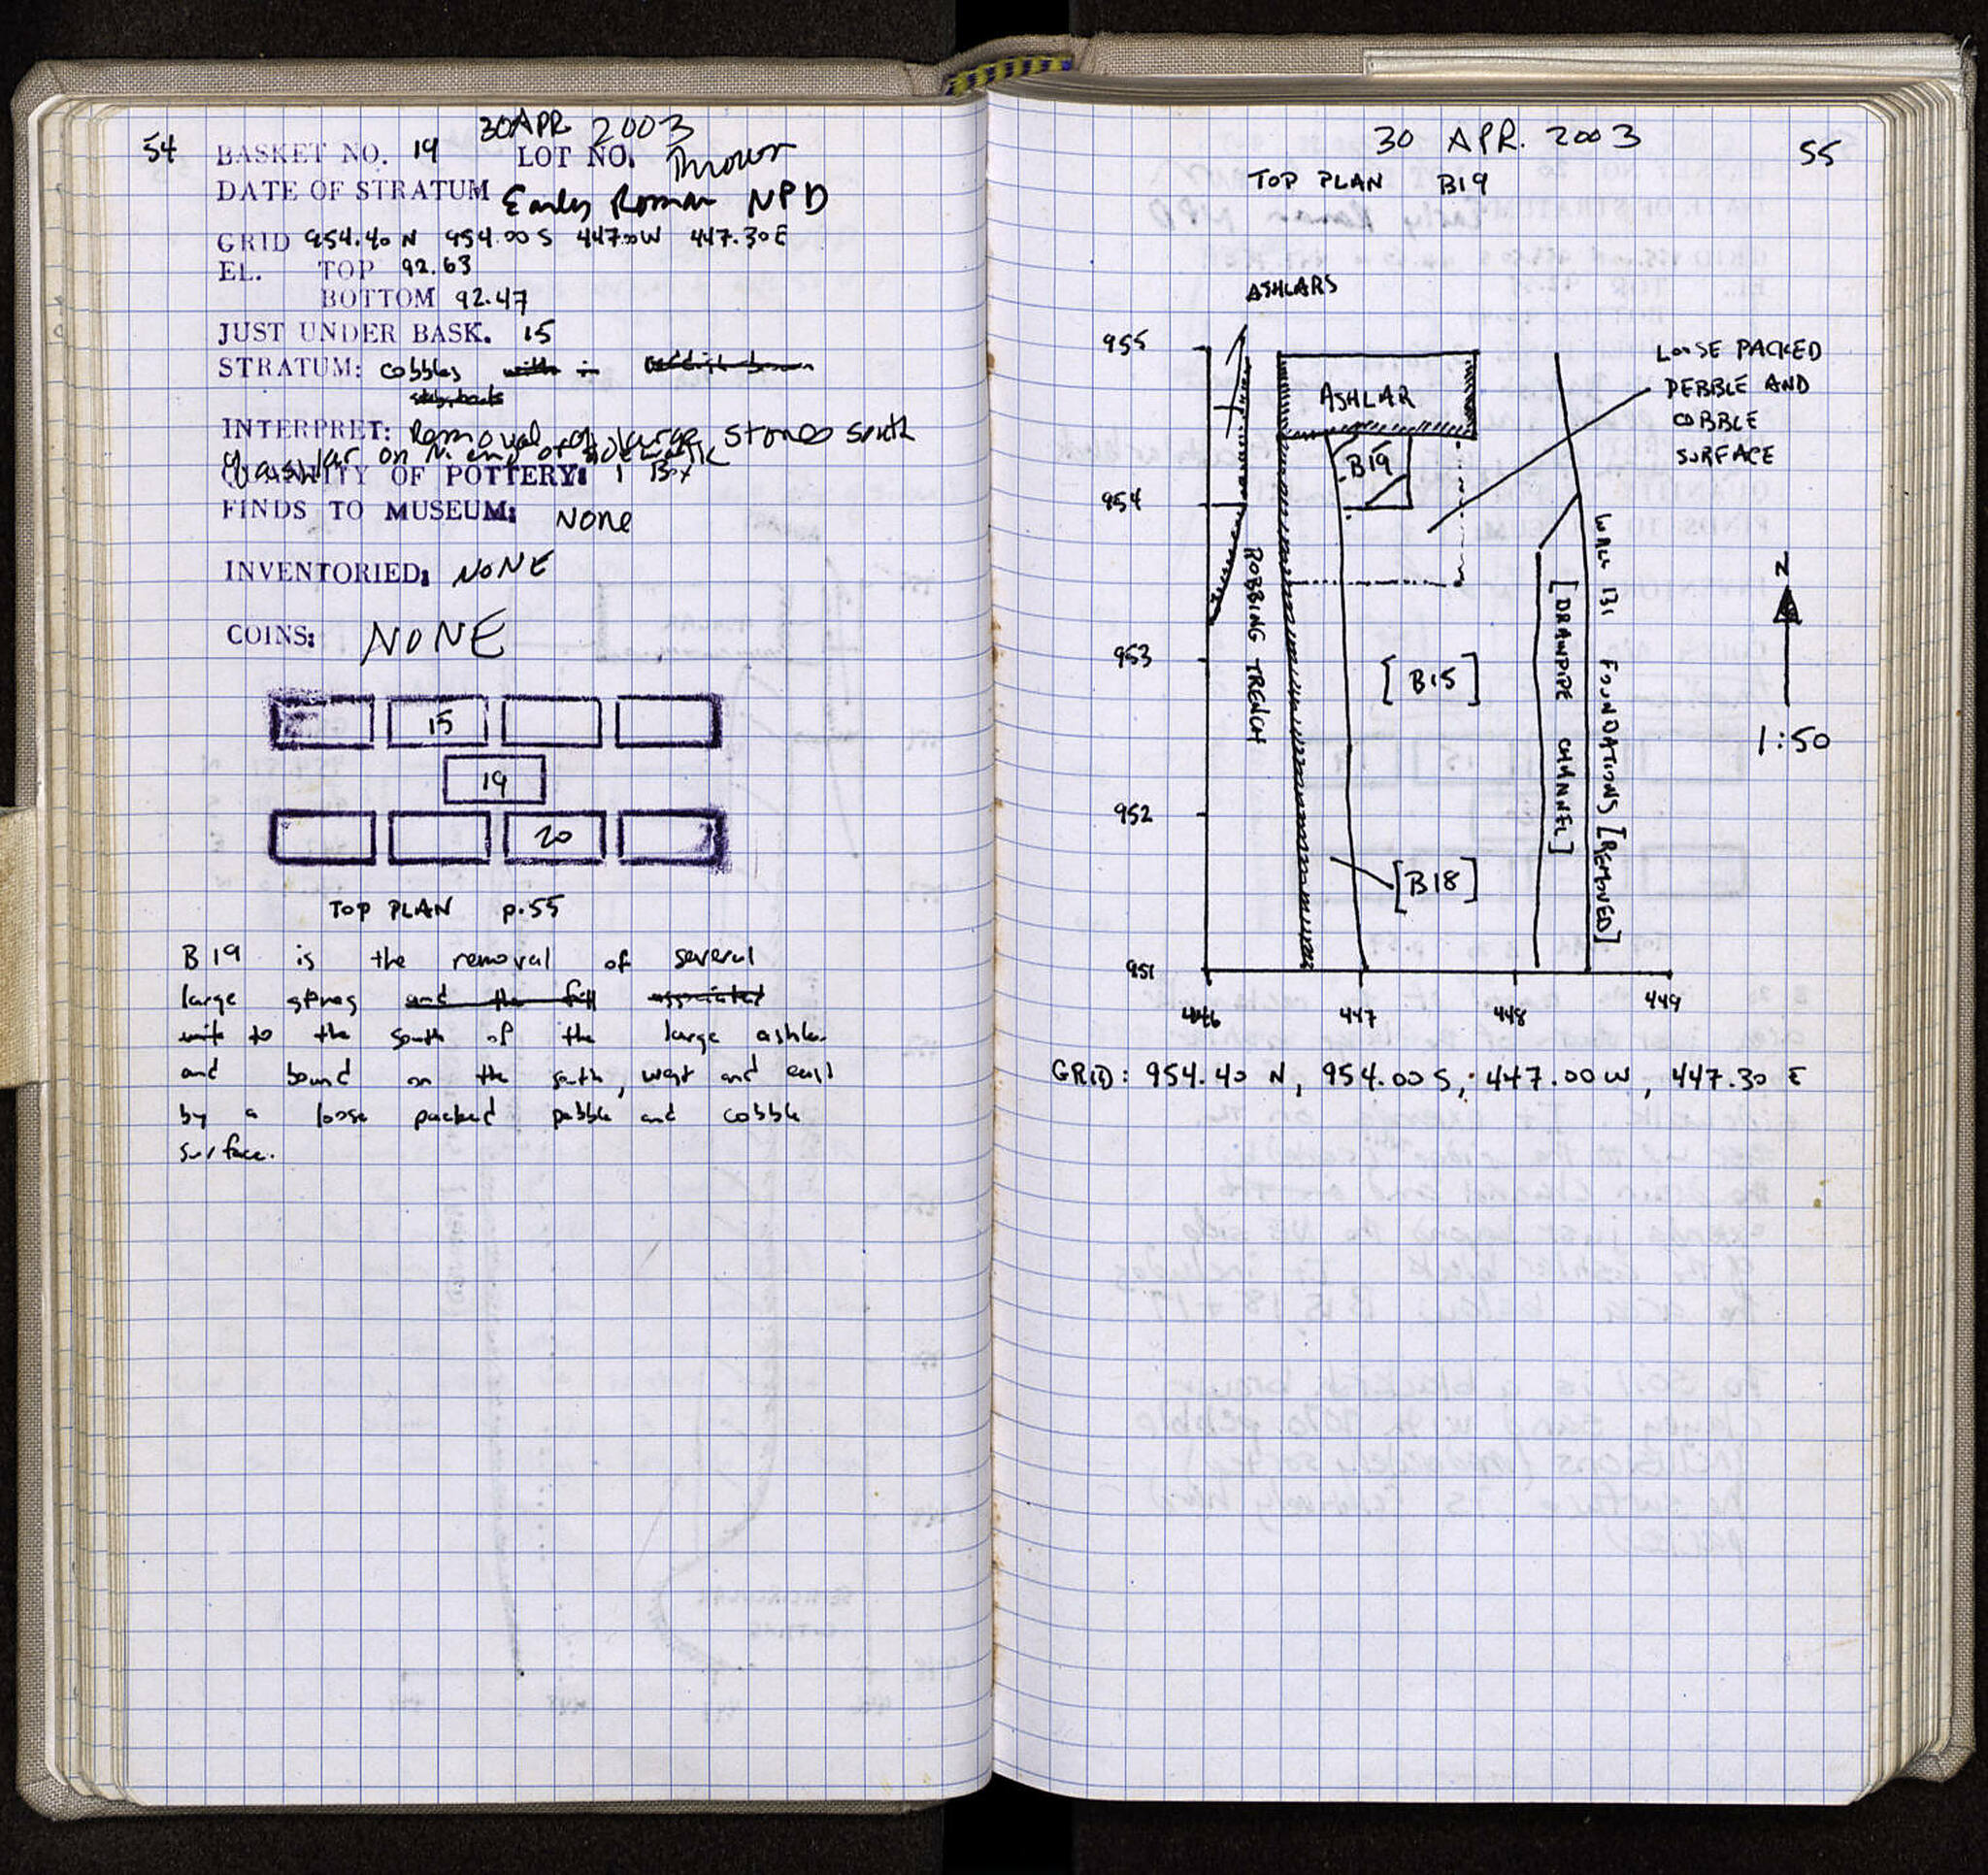 54
30 APR 2003
BASKET NO. 19 LOT NO. Thrown
DATE OF STRATUM Early Roman NPD
GRID 954.40 N 954.00 S 447.00 W 447.30 E
EL. TOP 92.63
BOTTOM 92.47
JUST UNDER BASK. 15
STRATUM: cobbles with in
INTERPRET: Removal of large stones south
of ashlar on N. end of sidewalk
QUANTITY OF POTTERY: 1 Box
FINDS TO MUSEUM: None
INVENTORIED: NONE
COINS: NONE
15
19
20
TOP PLAN p.55
B19 is the removal of several
large stones and the fill associated
with to the south of the large ashlar
and bound on the south, west and east
by a loose packed pebble and cobble
surface.
30 APR. 2003
55
TOP PLAN B19
ASHLARS
955
954
953
952
951
446
447
448
449
ASHLAR
B19
LOOSE PACKED
PEBBLE AND
COBBLE
SURFACE
ROBBING TRENCH
[B15]
[B18]
[DRAINPIPE CHANNEL]
WALL 131 FOUNDATIONS [REMOVED]
N
1:50
GRID: 954.40 N, 954.00 S, 447.00 W, 447.30 E